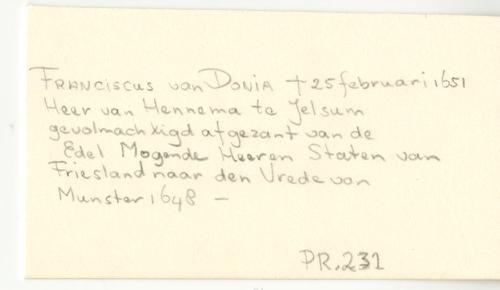 FRANCISCUS van DONIA † 25 februari 1651
Heer van Hennema te Jelsum
gevolmachtigd afgezant van de
Edel Mogende Heeren Staten van
Friesland naar den Vrede van
Munster 1648 –
PR.231